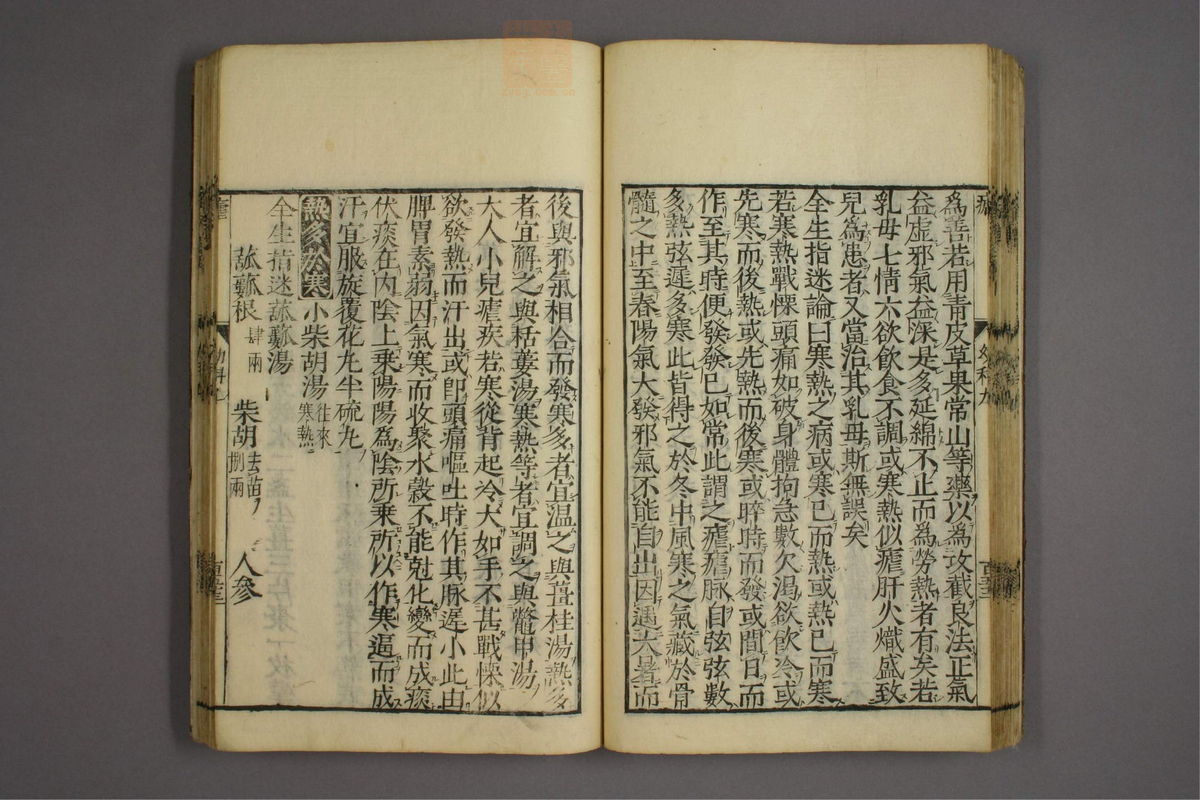 為善若用青皮草果常山等藥以為攻截良法正氣
益虛邪氣益深是多延綿不止而為勞熱者有矣若
乳母七情六欲飲食不調或寒熱似瘧肝火熾盛致
兒為患者又當治其乳母斯無誤矣
全生指迷論曰寒熱之病或寒已而熱或熱已而寒
若寒熱戰慄頭痛如破身體拘急數欠渴欲飲冷或
先寒而後熱或先熱而後寒或晬時而發或間日而
作至其時便發發已如常此謂之瘧瘧脉自弦弦數
多熱弦遲多寒此皆得之於冬中風寒之氣藏於骨
髓之中至春陽氣大發邪氣不能自出因遇大暑而
後與邪氣相合而發寒多者宜温之與薑桂湯熱多
者宜解之與栝蔞湯寒熱等者宜調之與鱉甲湯
大人小兒瘧疾若寒從背起冷大如手不甚戰慄似
欲發熱而汗出或即頭痛嘔吐時作其脉遲小此由
脾胃素弱因氣寒而收聚水穀不能尅化變而成痰
伏痰在内陰上乘陽陽為陰所乘所以作寒逼而成
汗宜服旋覆花丸半硫丸
熱多於寒 小柴胡湯 往來寒熱
全生指迷䒷䕨湯
䒷䕨根 肆兩 柴胡 去苗 捌兩 人參